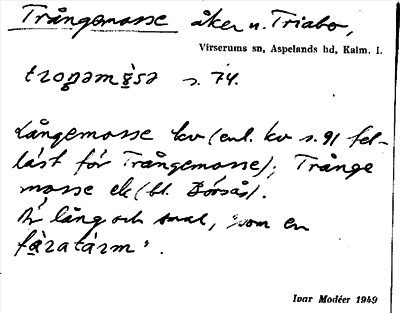 Trångemosse åker u. Triabo,
Virserums sn, Aspelands hd, Kalm. l.
s. 74.
Långemosse kv (enl. kv s. 91 fel-
läst för Trångemosse); Trånge
mosse ek (bl. Börsås).
Är lång och smal, "som en
fåratarm".
Ivar Modéer 1949